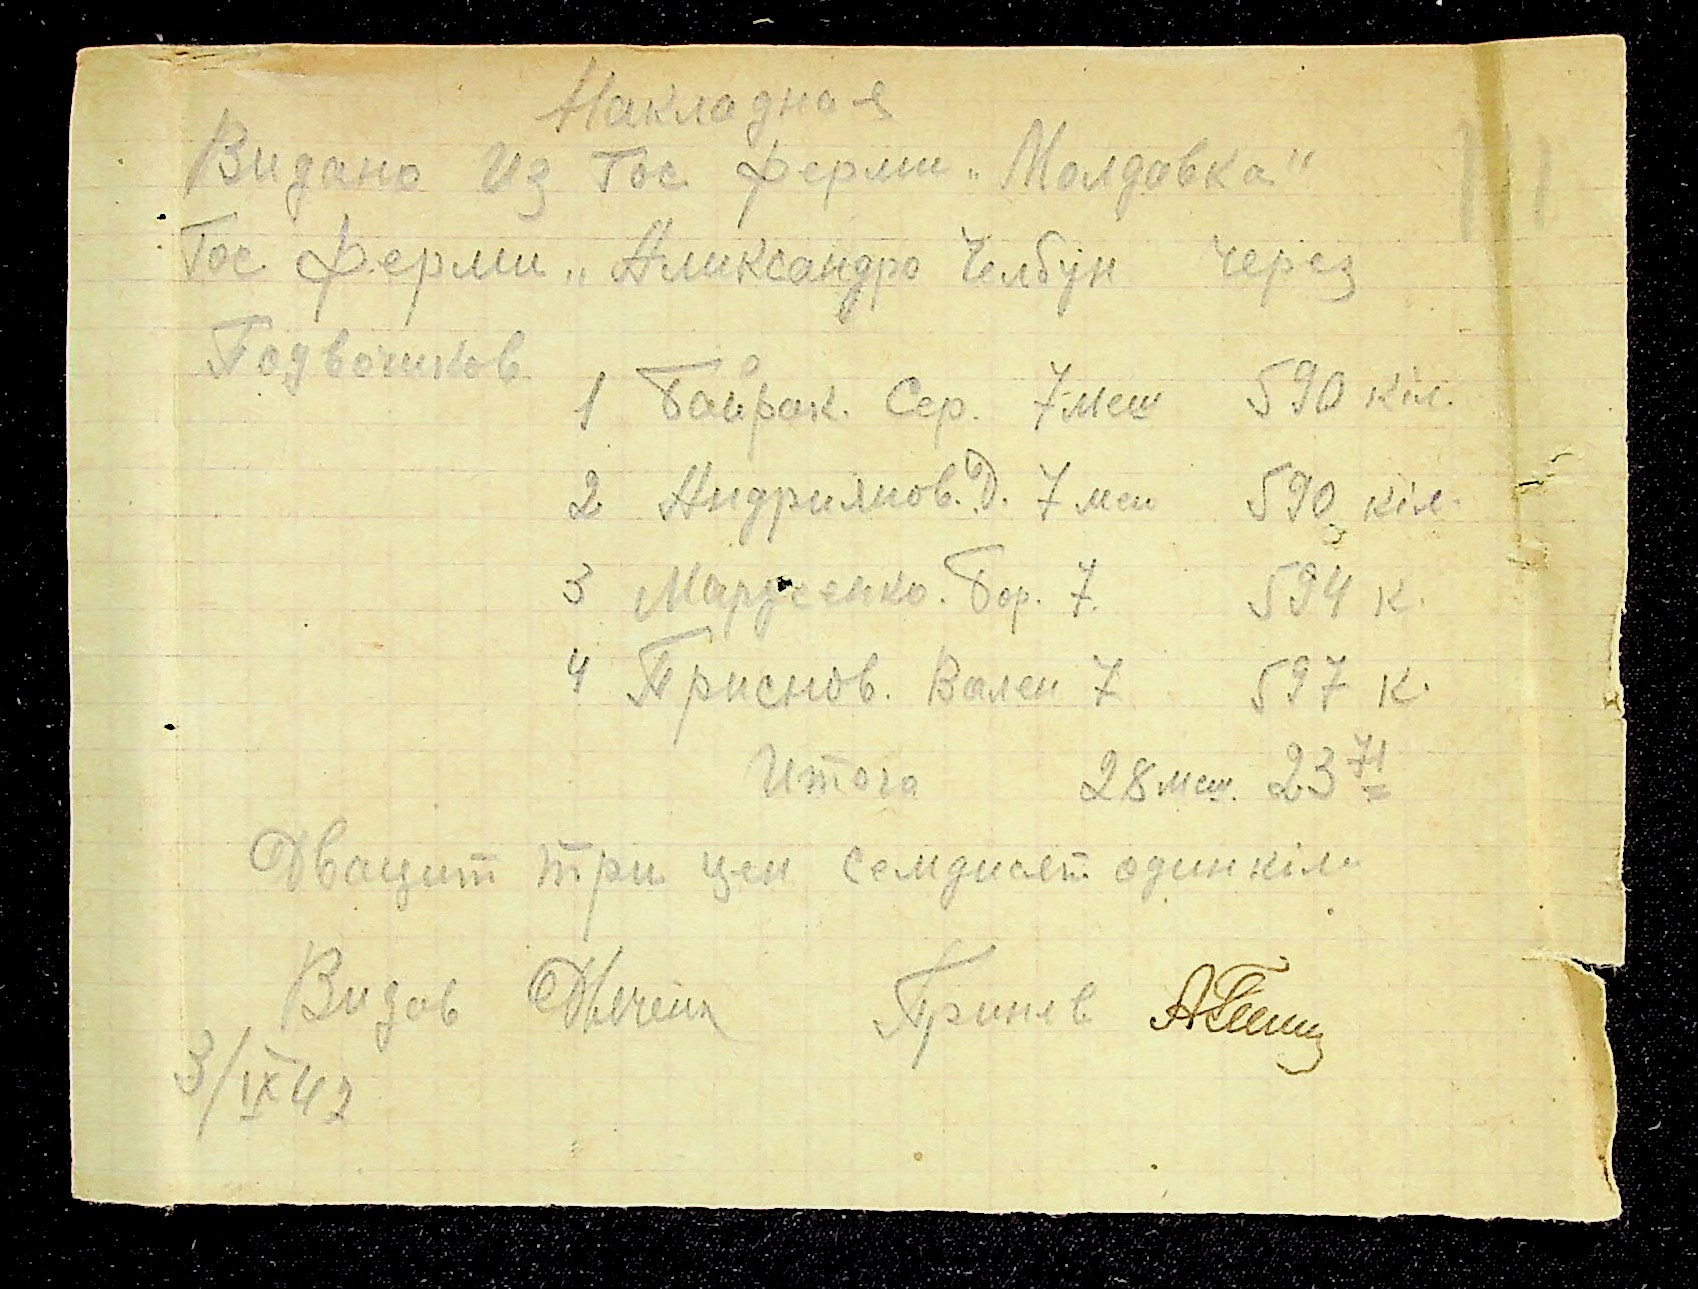 Накладная
Видано из Гос ферми „Молдавка"
Гос ферми „Аликсандро Челбун через
Подвошков
1 Байрак. Сер. 7меш 590 кіл.
2 Андриянов. Д. 7 меш 590 кіл.
3 Марусенко. Бор. 7. 594 к.
4 Приснов. Вален 7 597 к.
Итого 28меш. 23 71
Двацит три цен семдисят один кіл.
Видав Принев
3/IX 42